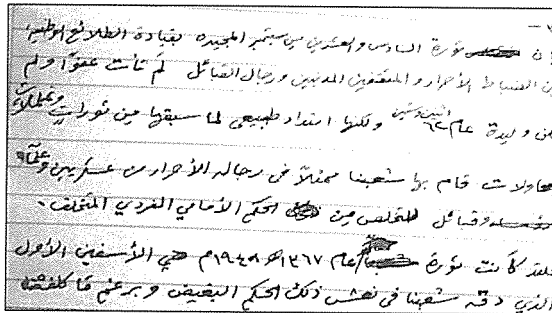 إن ثورة السادس والعشرين من سبتمبر المجيده بقيادة الطلائع الوطنيه
من الضباط الأحرار والمثقفين المدنيين ورجال القبائل لم تأت عفوًا ولم
تكن وليدة عام اثنين وستين ٦٢ ولكنها امتداد طبيعي لما سبقها من ثورات
محاولات قام بها شعبنا ممثلاً في رجاله الأحرار من عسكريين
وقبائل للتخلص من الحكم الأمامي الفردي المتخلف .
فلقد كانت ثورة عام ١٣٦٧هـ ١٩٤٨م هي الأسفين الأول
الذي دقه شعبنا في نعش ذلك الحكم البغيض وبرغم ما